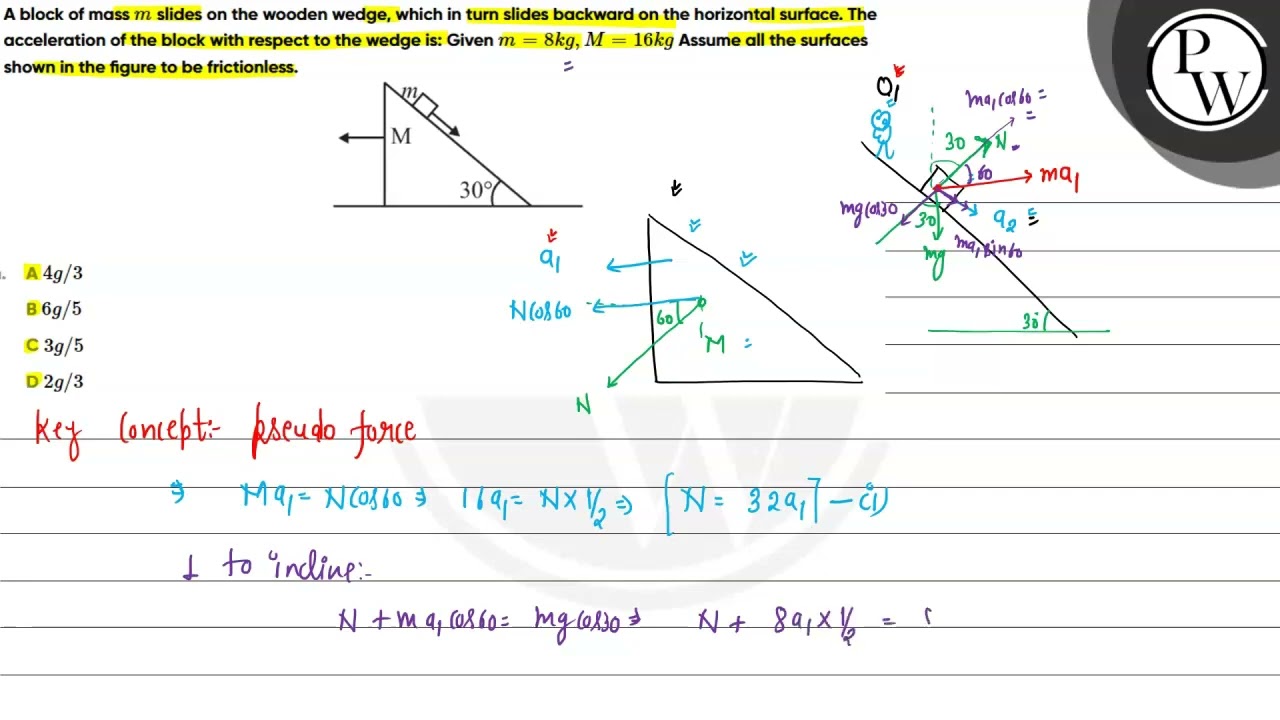 A block of mass m slides on the wooden wedge, which in turn slides backward on the horizontal surface. The
acceleration of the block with respect to the wedge is: Given m = 8kg, M = 16kg Assume all the surfaces
shown in the figure to be frictionless.
m
M
30°
A 4g/3
B 6g/5
C 3g/5
D 2g/3
a₁
N cos 60
60
M
N
a₁
ma₁ cos 60
30
N
60
ma₁
mg cos 30
30
a₂
mg
ma₁ sin 60
30°
P
W
Key Concept:- pseudo force
⇒ Ma₁ = N cos 60 ⇒ 16a₁ = N × 1/2 ⇒ [N = 32a₁] – (i)
⊥ to incline:-
N + ma₁ cos 60 = mg cos 30 ⇒ N + 8a₁ × 1/2 =